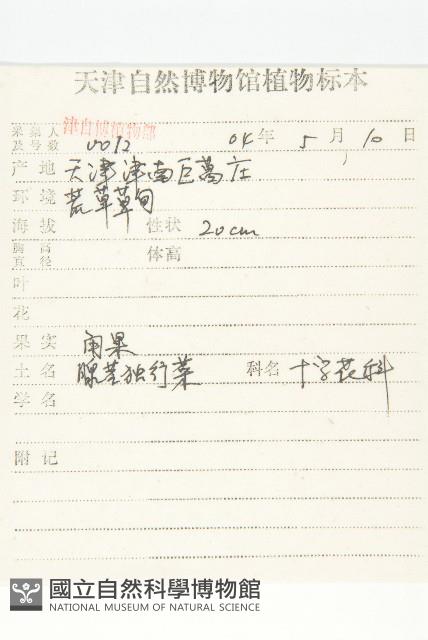 天津自然博物馆植物标本
采集人及号数 津自博植物部 0012 04年5月10日
产地 天津津南巨葛庄
环境 荒草草甸
海拔 性状 20cm
胸高直径 体高
叶
花
果实 角果
土名 腺茎独行菜 科名 十字花科
学名
附记
國立自然科學博物館
NATIONAL MUSEUM OF NATURAL SCIENCE